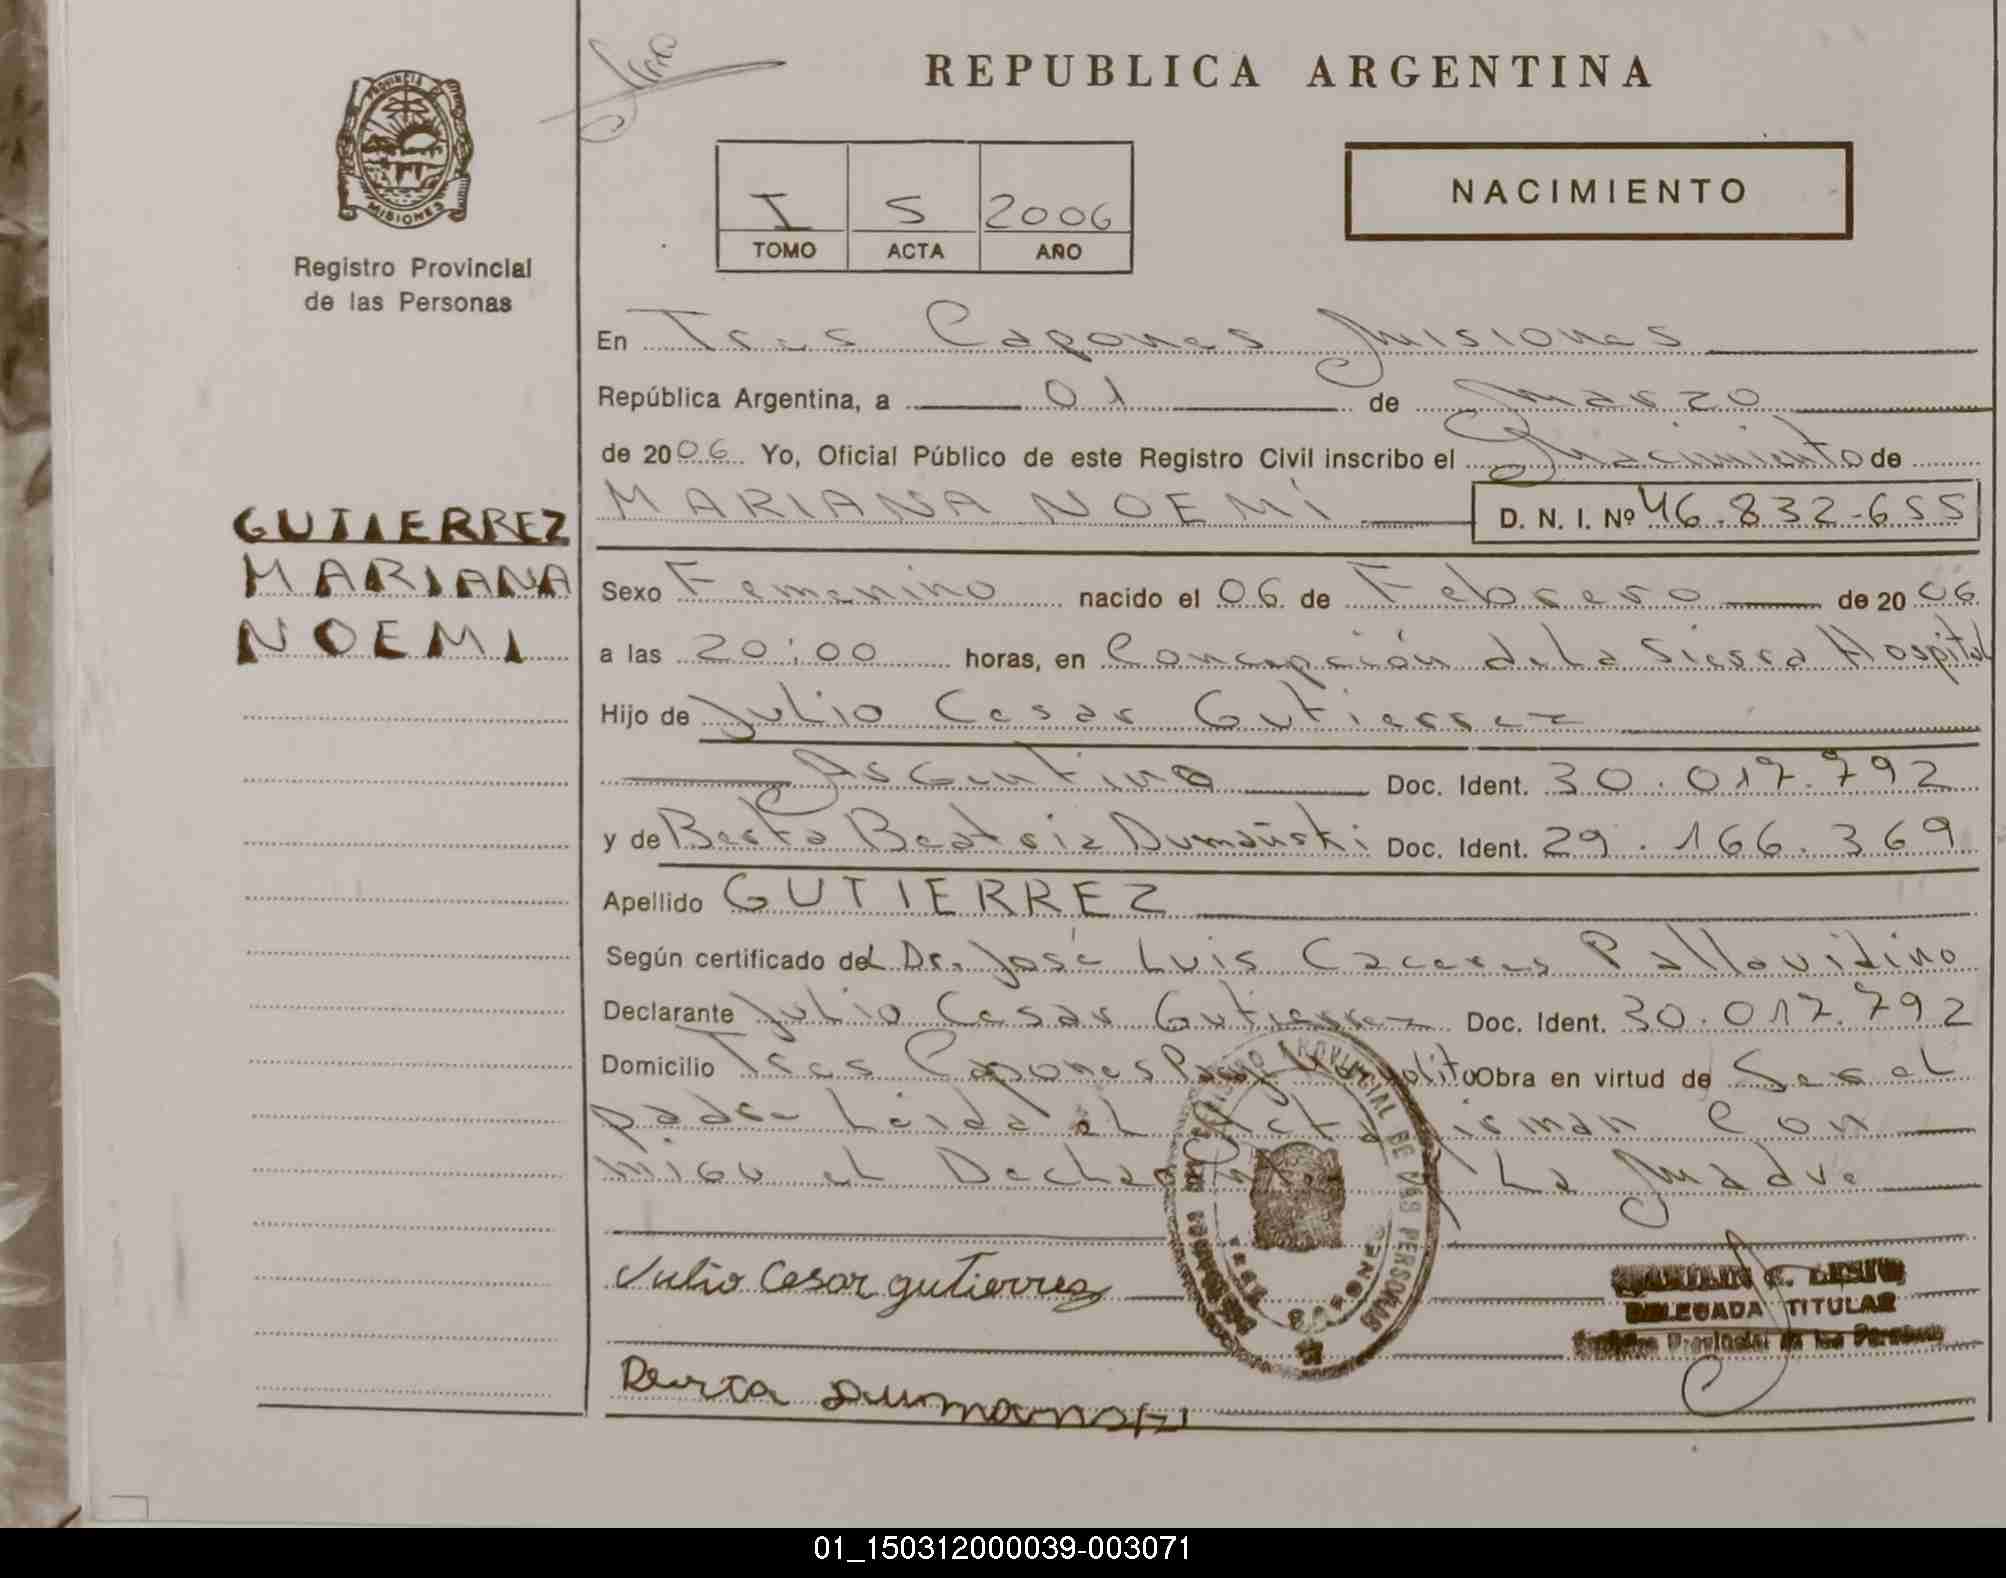 REPUBLICA ARGENTINA
PROVINCIA DE
MISIONES
Registro Provincial
de las Personas
I S 2006
TOMO ACTA AÑO
NACIMIENTO
En Tres Capones Misiones
República Argentina, a 01 de Marzo
de 2006. Yo, Oficial Público de este Registro Civil inscribo el Nacimiento de
MARIANA NOEMÍ D. N. I. Nº 46.832-655
GUTIERREZ
MARIANA
NOEMI
Sexo Femenino nacido el 06 de Febrero de 2006
a las 20:00 horas, en Concepción de La Sierra Hospital
Hijo de Julio Cesar Gutierrez
Argentino Doc. Ident. 30.017.792
y de Berta Beatriz Dumañski Doc. Ident. 29.166.369
Apellido GUTIERREZ
Según certificado del Dr. José Luis Caceres Pallavidino
Declarante Julio Cesar Gutierrez Doc. Ident. 30.017.792
Domicilio Tres Capones Obra en virtud de Ser el
padre Leída el Acta firman Con
migo el La Madre
REGISTRO PROVINCIAL DE LAS PERSONAS
TRES CAPONES
Julio Cesar gutierrez
DELEGADA TITULAR
Registro Provincial de las Personas
Berta Dumanski
01_150312000039-003071